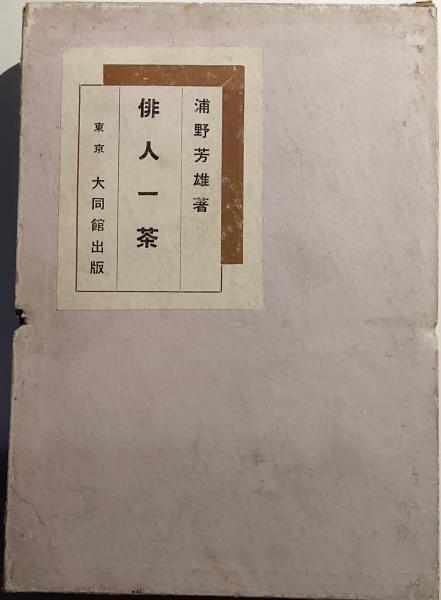 浦野芳雄著
俳人一茶
東京 大同館出版